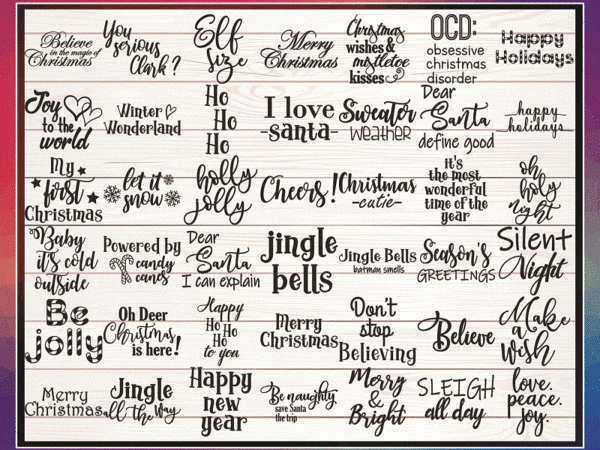 Believe
in the magic of
Christmas
You
serious
Clark?
Elf
Size
Merry
Christmas
Christmas
wishes &
mistletoe
kisses
OCD:
obsessive
christmas
disorder
Happy
Holidays
Joy
to the
world
Winter
Wonderland
Ho
Ho
Ho
I love
-santa-
Sweater
weather
Dear
Santa
define good
happy
holidays
My
first
Christmas
let it
snow
holly
jolly
Cheers!
Christmas
-cutie-
it's
the most
wonderful
time of the
year
oh
holy
night
Baby
it's cold
outside
Powered by
candy
canes
Dear
Santa
I can explain
jingle
bells
Jingle Bells
batman smells
Season's
GREETINGS
Silent
Night
Be
jolly
Oh Deer
Christmas
is here!
Happy
Ho Ho
Ho
to you
Merry
Christmas
Don't
stop
Believing
Believe
Make
a
wish
Merry
Christmas
Jingle
all the Way
Happy
new
year
Be naughty
save Santa
the trip
Merry
&
Bright
SLEIGH
all day
love.
peace.
joy.